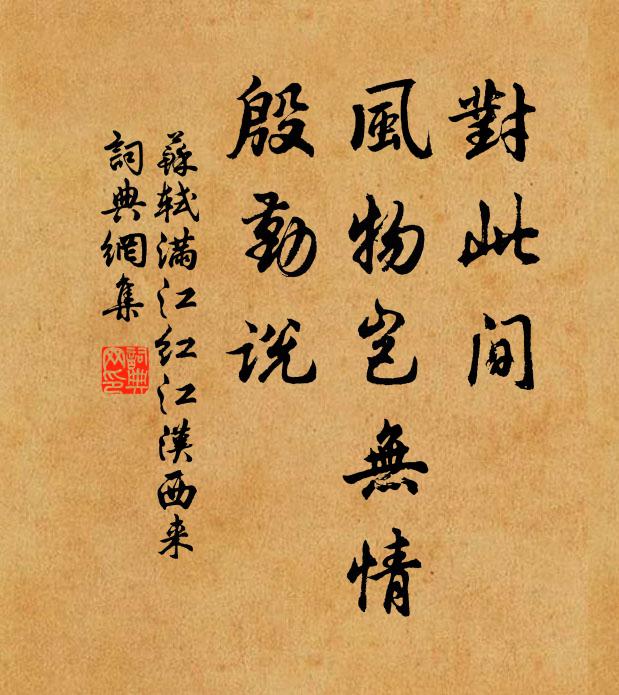 對此間
風物豈無情
殷勤說
蘇軾滿江红江漢西来
詞典網集
詞典
网印